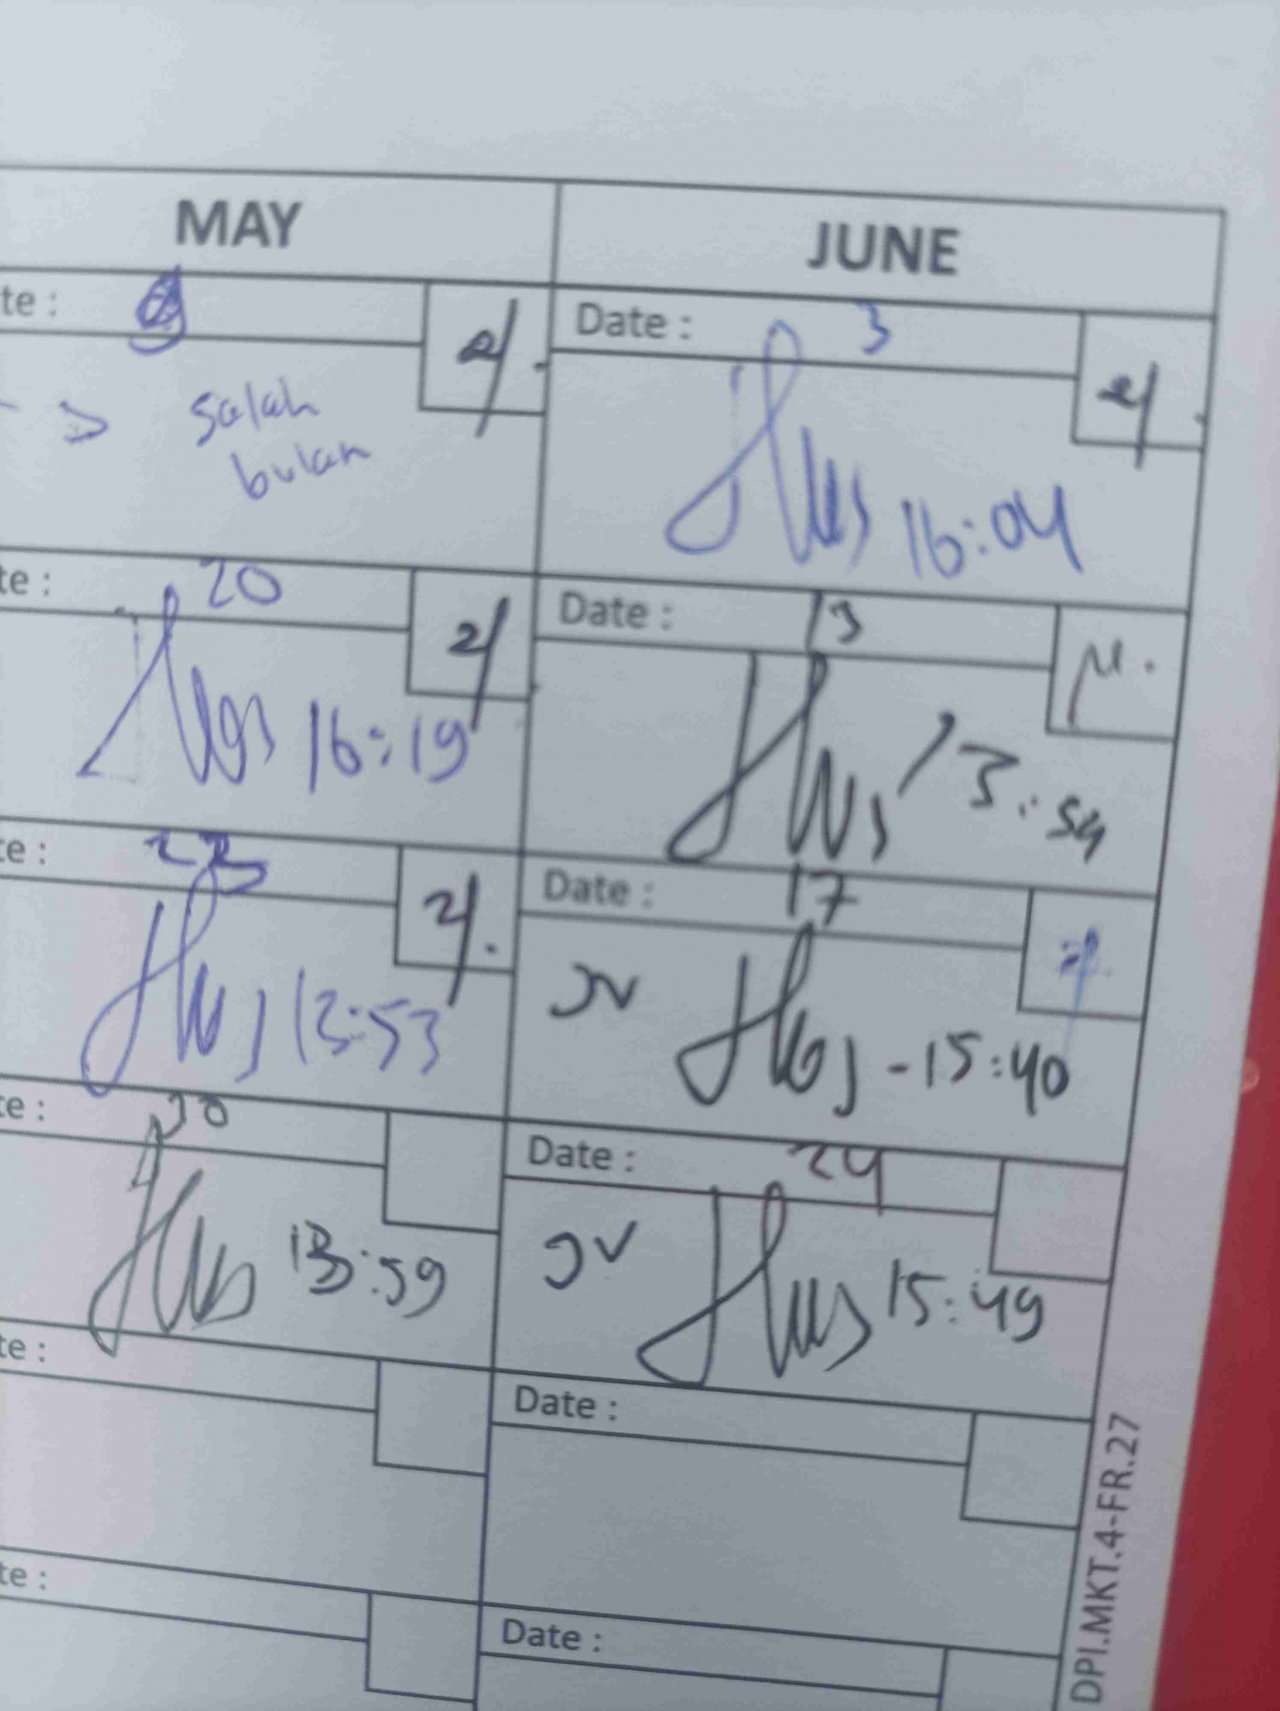 MAY
JUNE
te :
Date : 3
salah
bulan
16:04
te : 20
Date : 13
16:19
13:54
te : 23
Date : 17
13:53
JV
-15:40
te : 30
Date : 24
13:59
JV
15:49
te :
Date :
te :
Date :
DPI.MKT.4-FR.27